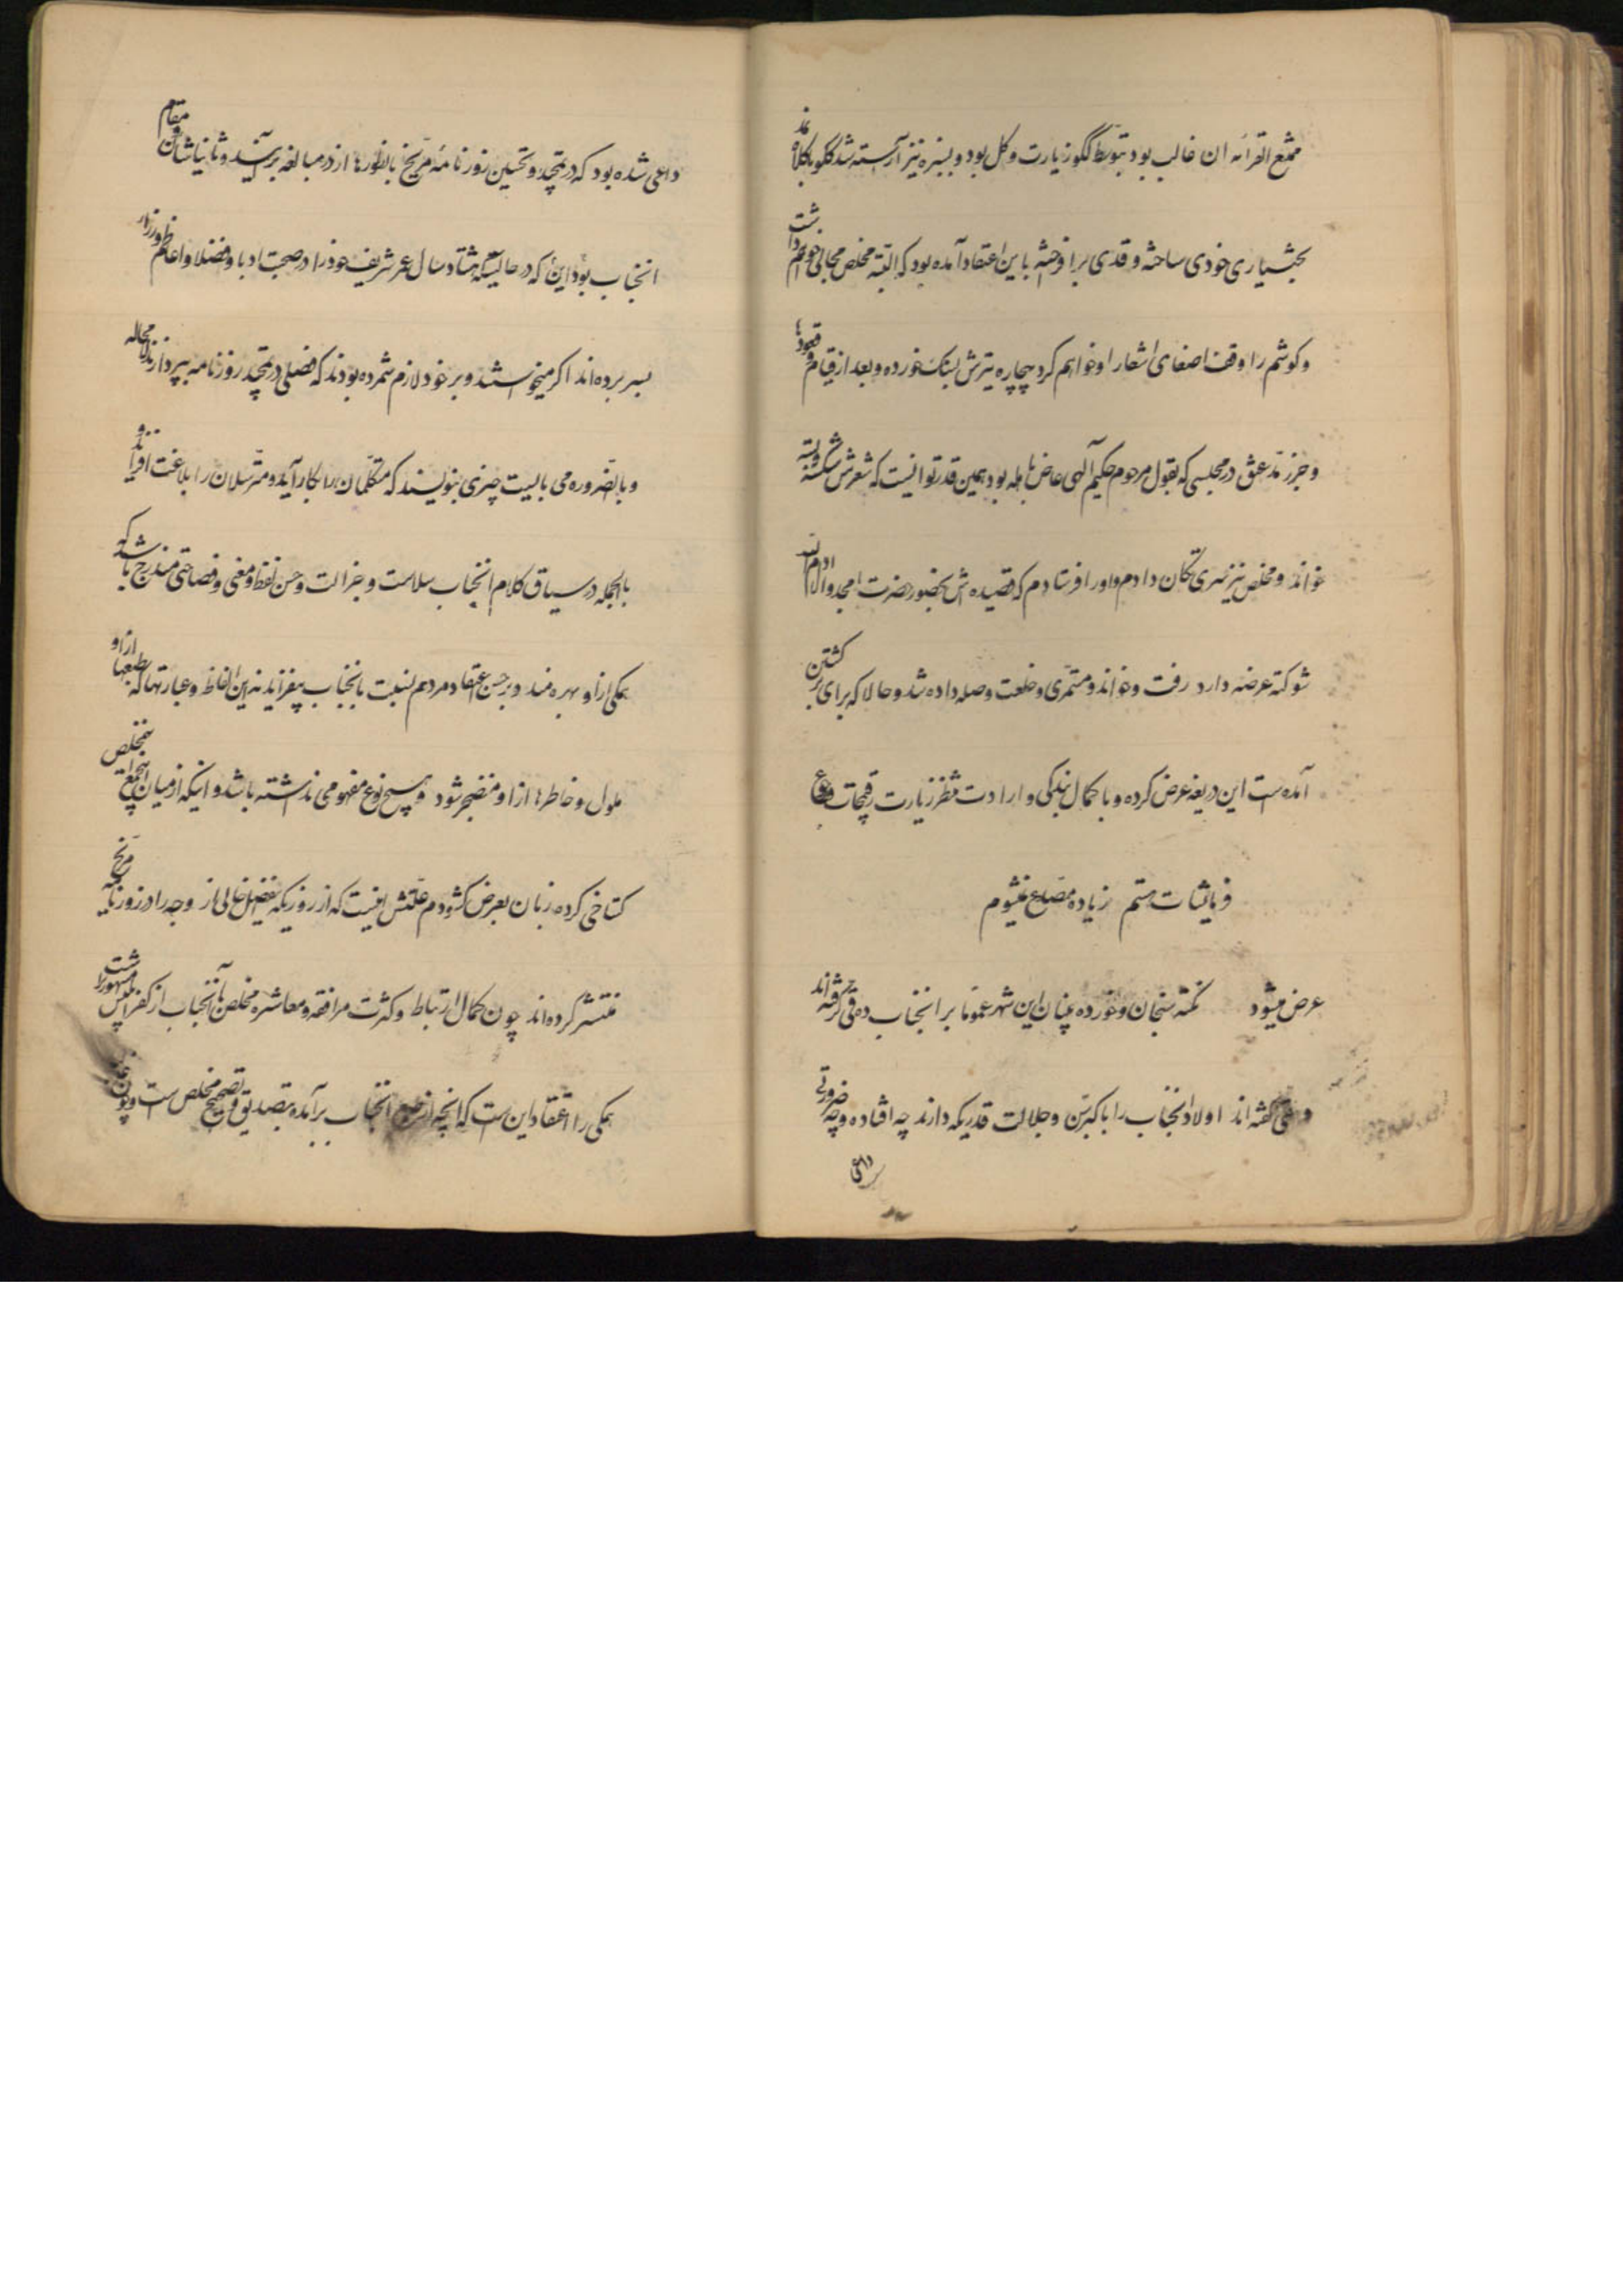 ممتنع القرائه ان غالب بود بتوسط گلگو زیارت و گل بود و بسبزه نیز آراسته شد گلگو با کلاه نمد
بختیاری خودی ساخته و قدی برافروخته باین اعتقاد آمده بود که البته مخلص مجالی خواهم داشت
و گوشم را وقف اصغای اشعار او خواهم کرد بیچاره تیرش بسنگ خورده و بعد از قیام و قعودها
و جزر و مد عنق در مجلسی که بقول مرحوم حکیم آلهی غاص باهله بود همین قدر توانست که شعرش شکسته و بسته
خواند و مخلص نیز سری تکان دادم و او را فرستادم که قصیده‌اش بحضور حضرت امجد والا ادام الله
شوکته عرضه دارد رفت و خواند و مستمری و خلعت و صله داده شد و حالا که برای برگشتن
آمده است این ذریعه عرض کرده و با کمال بندگی و ارادت منتظر زیارت رقیمجات رفیع
و فرمایشات هستم زیاده مصدع نمیشوم
عرض میشود نکته سنجان و خورده بینان این شهر عموما بر آنجناب دو دقی گرفته اند
و دقی گفته اند اولا آنجناب را با کبر سن و جلالت قدریکه دارند چه افتاده و چه ضرورتی
داعی
داعی شده بود که در تمجید و تحسین روزنامه مریخ باینطورها از در مبالغه برآیند و ثانیا شان و مقام
آنجناب بود این که در حالتیکه هشتاد سال عمر شریف خود را در صحبت ادبا و فضلا و اعاظم وزراء
بسر برده اند اگر میخواستند و بر خود لازم شمرده بودند که فضلی در تمجید روزنامه بپردازند لامحاله
و بالضروره می بایست چیزی بنویسند که متکلمان را بکار آید و مترسلان را بلاغت افزاید و
بالجمله در سیاق کلام آنجناب سلاست و جزالت و حسن لفظ و معنی و فصاحتی مندرج باشد که
همگی از او بهره مند و بر حسن اعتقاد مردم نسبت بآنجناب بیفزاید نه این الفاظ و عبارتها که طبعها از او
ملول و خاطرها از او منضجر شود و هیچ نوع مفهومی نداشته باشد و اینکه از میان اینجمع مخلص
گستاخی کرده زبان بعرض گشودم علتش اینست که از روزیکه فضل خالی از وجه را در روزنامه مریخ
منتشر کرده اند چون کمال ارتباط و کثرت مرافقه و معاشره مخلص با آنجناب از کفر ابلیس مشهورتر است
همگی را اعتقاد این است که آنچه از طبع آنجناب برآمده بتصدیق و تصحیح مخلص است و چون